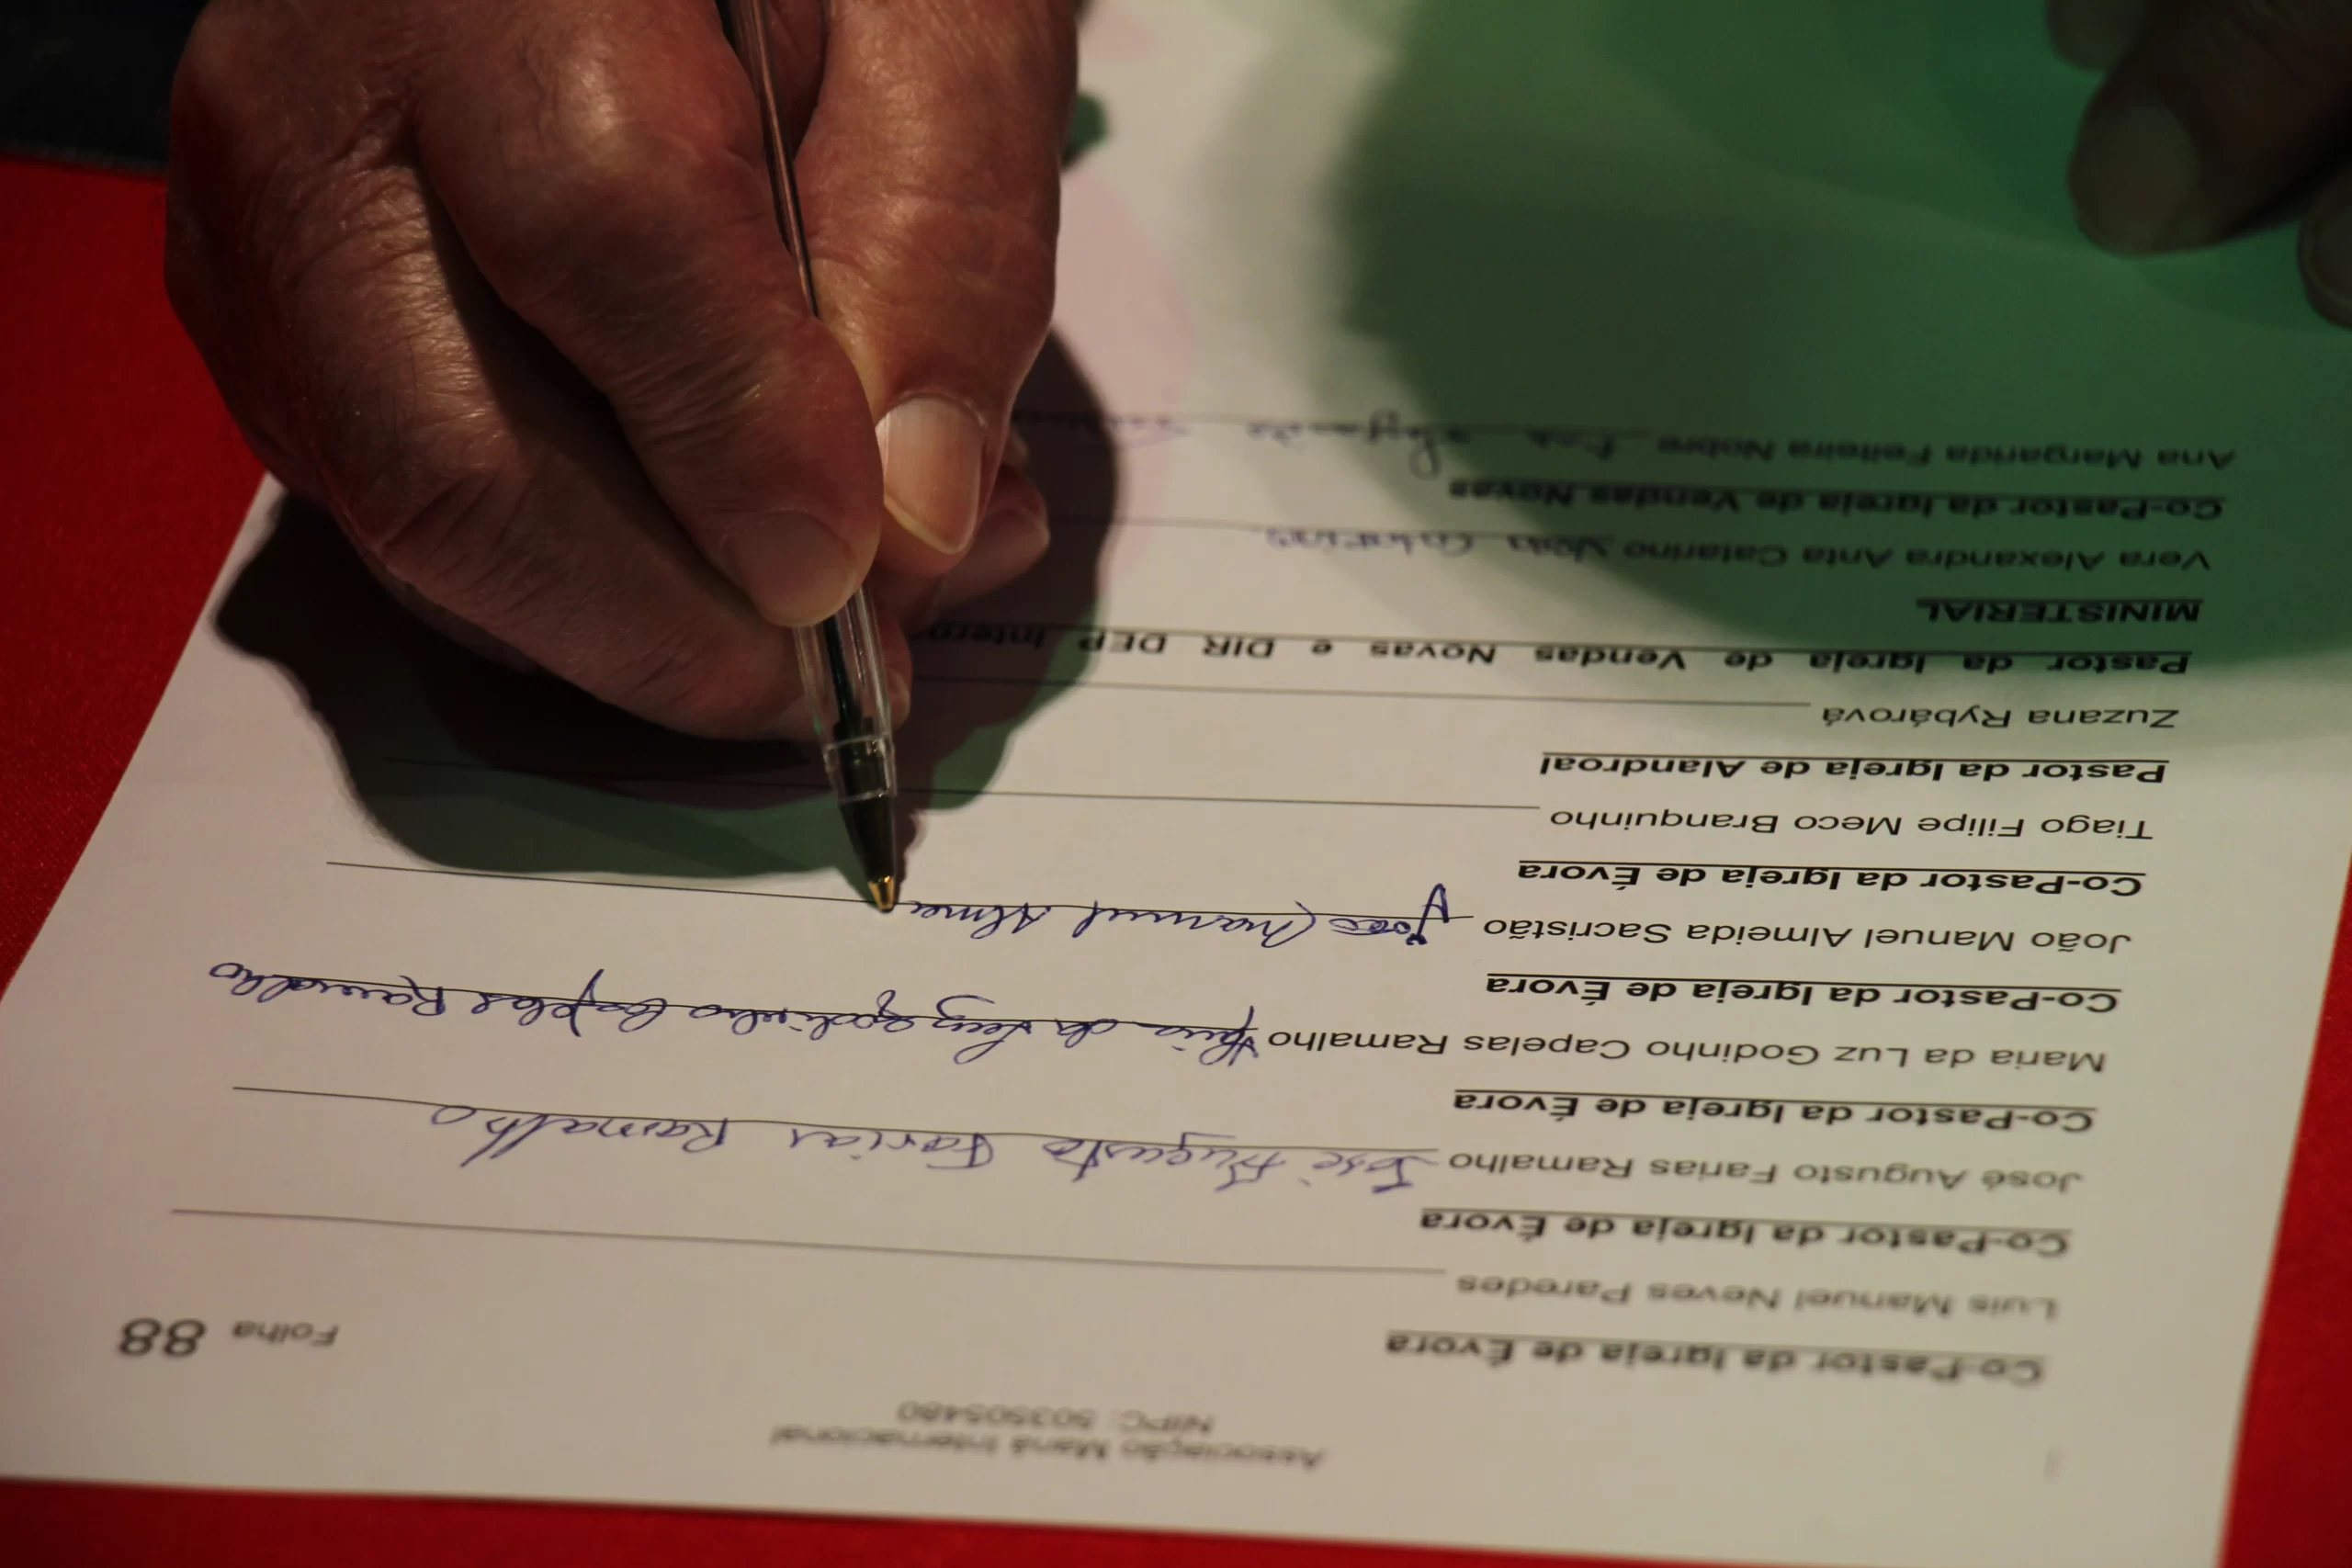 Associação Maná Internacional
NIPC: 503505480
Folha 88
Co-Pastor da Igreja de Évora
Luis Manuel Neves Paredes
Co-Pastor da Igreja de Évora
José Augusto Farias Ramalho José Augusto Farias Ramalho
Co-Pastor da Igreja de Évora
Maria da Luz Godinho Capelas Ramalho Maria da Luz Godinho Capelas Ramalho
Co-Pastor da Igreja de Évora
João Manuel Almeida Sacristão João Manuel Alme
Co-Pastor da Igreja de Évora
Tiago Filipe Meco Branquinho
Pastor da Igreja de Alandroal
Zuzana Rybárová
Pastor da Igreja de Vendas Novas e DIR DEP Intern
MINISTERIAL
Vera Alexandra Anta Catarino Vera Catarino
Co-Pastor da Igreja de Vendas Novas
Ana Margarida Feiteira Nobre Ana Margarida